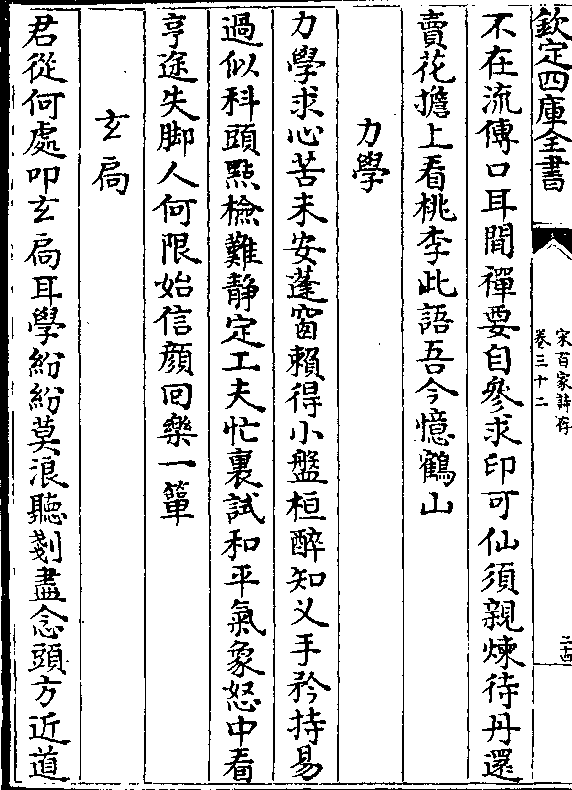 欽定四庫全書
宋百家詩存
卷三十二
二十四
不在流傳口耳間禪要自參求印可仙須親煉待丹還
賣花擔上看桃李此語吾今憶鶴山
力學
力學求心苦未安蓬窗賴得小盤桓醉知叉手矜持易
過似科頭點檢難静定工夫忙裏試和平氣象怒中看
亨途失脚人何限始信顔囘樂一簞
玄扃
君從何處叩玄扃耳學紛紛莫浪聽剗盡念頭方近道